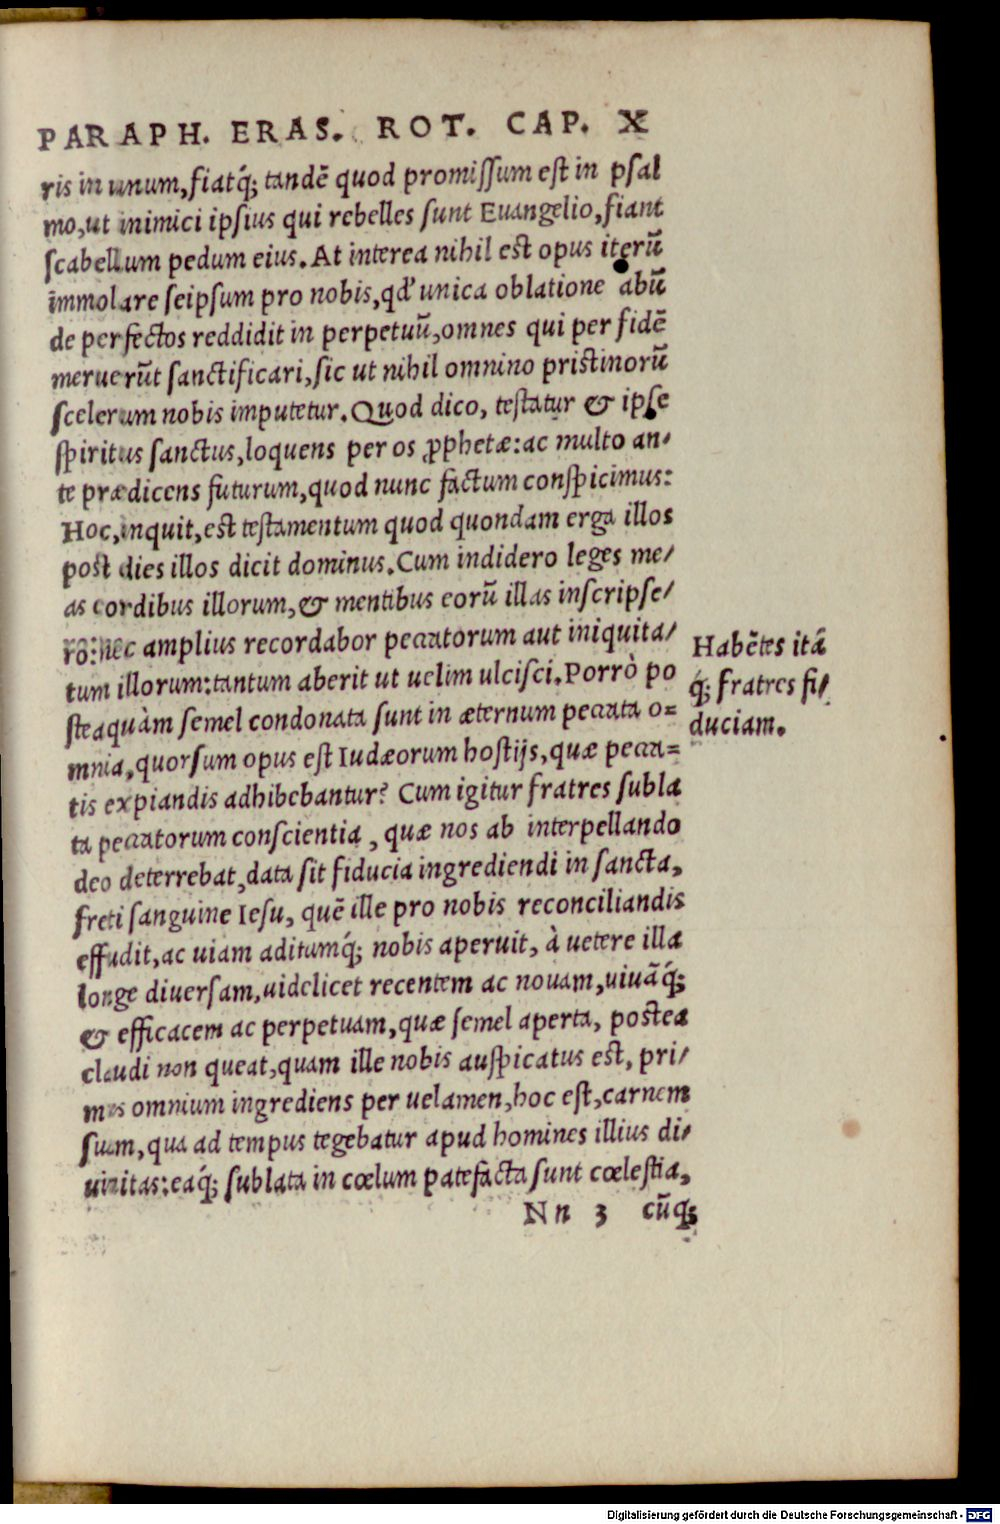 PARAPH. ERAS. ROT. CAP. X
ris in unum, fiatq́; tandē quod promiſſum eſt in pſal
mo, ut inimici ipſius qui rebelles ſunt Euangelio, fiant
ſcabellum pedum eius. At interea nihil eſt opus iterū
immolare ſeipſum pro nobis, qđ unica oblatione abū
de perfectos reddidit in perpetuū, omnes qui per fidē
meruerūt ſanctificari, ſic ut nihil omnino priſtinorū
ſcelerum nobis imputetur. Quod dico, teſtatur & ipſe
ſpiritus ſanctus, loquens per os ꝓphetæ: ac multo an/
te prædicens futurum, quod nunc factum conſpicimus:
Hoc, inquit, eſt teſtamentum quod quondam erga illos
poſt dies illos dicit dominus. Cum indidero leges me/
as cordibus illorum, & mentibus eorū illas inſcripſe/
ro: nec amplius recordabor peccatorum aut iniquita/
tum illorum: tantum aberit ut uelim ulciſci. Porrò po
ſteaquàm ſemel condonata ſunt in æternum peccata o=
mnia, quorſum opus eſt Iudæorum hoſtijs, quæ pecca=
tis expiandis adhibebantur? Cum igitur fratres ſubla
ta peccatorum conſcientia, quæ nos ab interpellando
deo deterrebat, data ſit fiducia ingrediendi in ſancta,
freti ſanguine Ieſu, quē ille pro nobis reconciliandis
effudit, ac uiam aditumq́; nobis aperuit, à uetere illa
longe diuerſam, uidelicet recentem ac nouam, uiuāq́;
& efficacem ac perpetuam, quæ ſemel aperta, poſtea
claudi non queat, quam ille nobis auſpicatus eſt, pri/
mus omnium ingrediens per uelamen, hoc eſt, carnem
ſuam, qua ad tempus tegebatur apud homines illius di/
uinitas: eaq́; ſublata in cœlum patefacta ſunt cœleſtia,
Nn 3 cūq;
Habētes itá
q; fratres fi/
duciam.
Digitalisierung gefördert durch die Deutsche Forschungsgemeinschaft - DFG